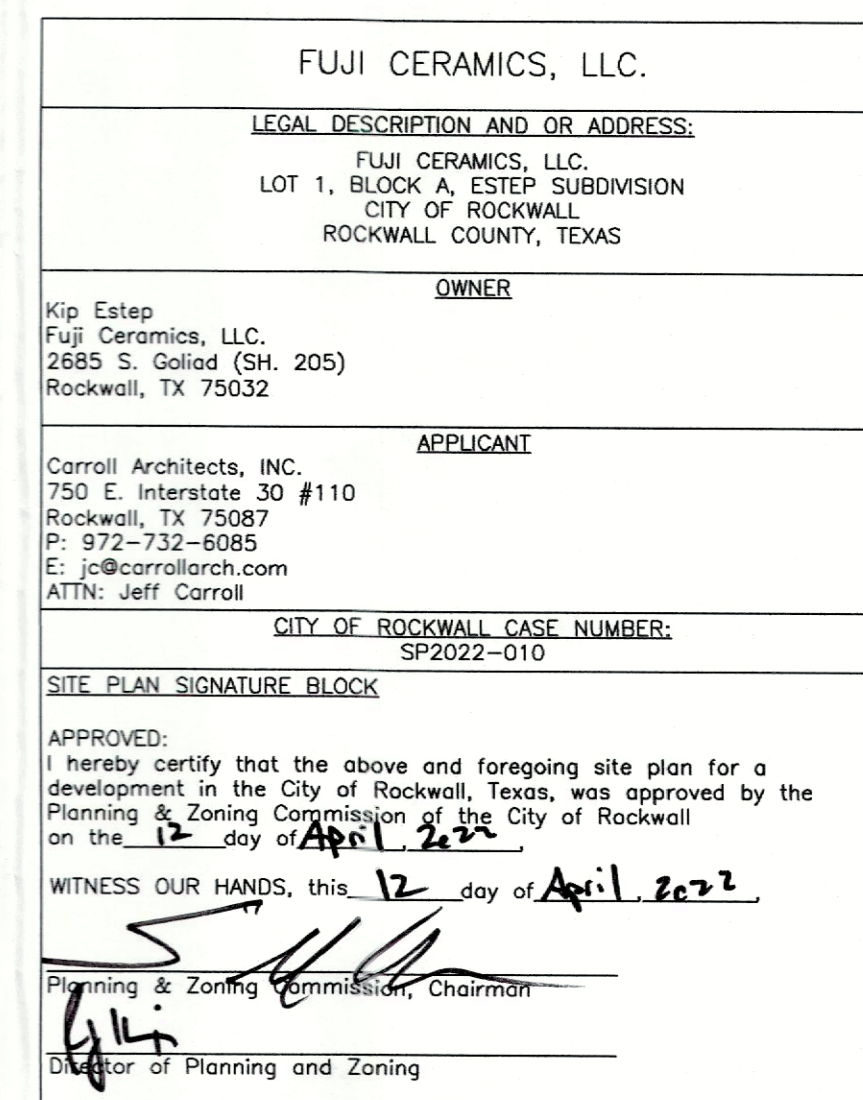 FUJI CERAMICS, LLC.
LEGAL DESCRIPTION AND OR ADDRESS:
FUJI CERAMICS, LLC.
LOT 1, BLOCK A, ESTEP SUBDIVISION
CITY OF ROCKWALL
ROCKWALL COUNTY, TEXAS
OWNER
Kip Estep
Fuji Ceramics, LLC.
2685 S. Goliad (SH. 205)
Rockwall, TX 75032
APPLICANT
Carroll Architects, INC.
750 E. Interstate 30 #110
Rockwall, TX 75087
P: 972-732-6085
E: jc@carrollarch.com
ATTN: Jeff Carroll
CITY OF ROCKWALL CASE NUMBER:
SP2022-010
SITE PLAN SIGNATURE BLOCK
APPROVED:
I hereby certify that the above and foregoing site plan for a
development in the City of Rockwall, Texas, was approved by the
Planning & Zoning Commission of the City of Rockwall
on the 12 day of April, 2022,
WITNESS OUR HANDS, this 12 day of April, 2022,
Planning & Zoning Commission, Chairman
Director of Planning and Zoning